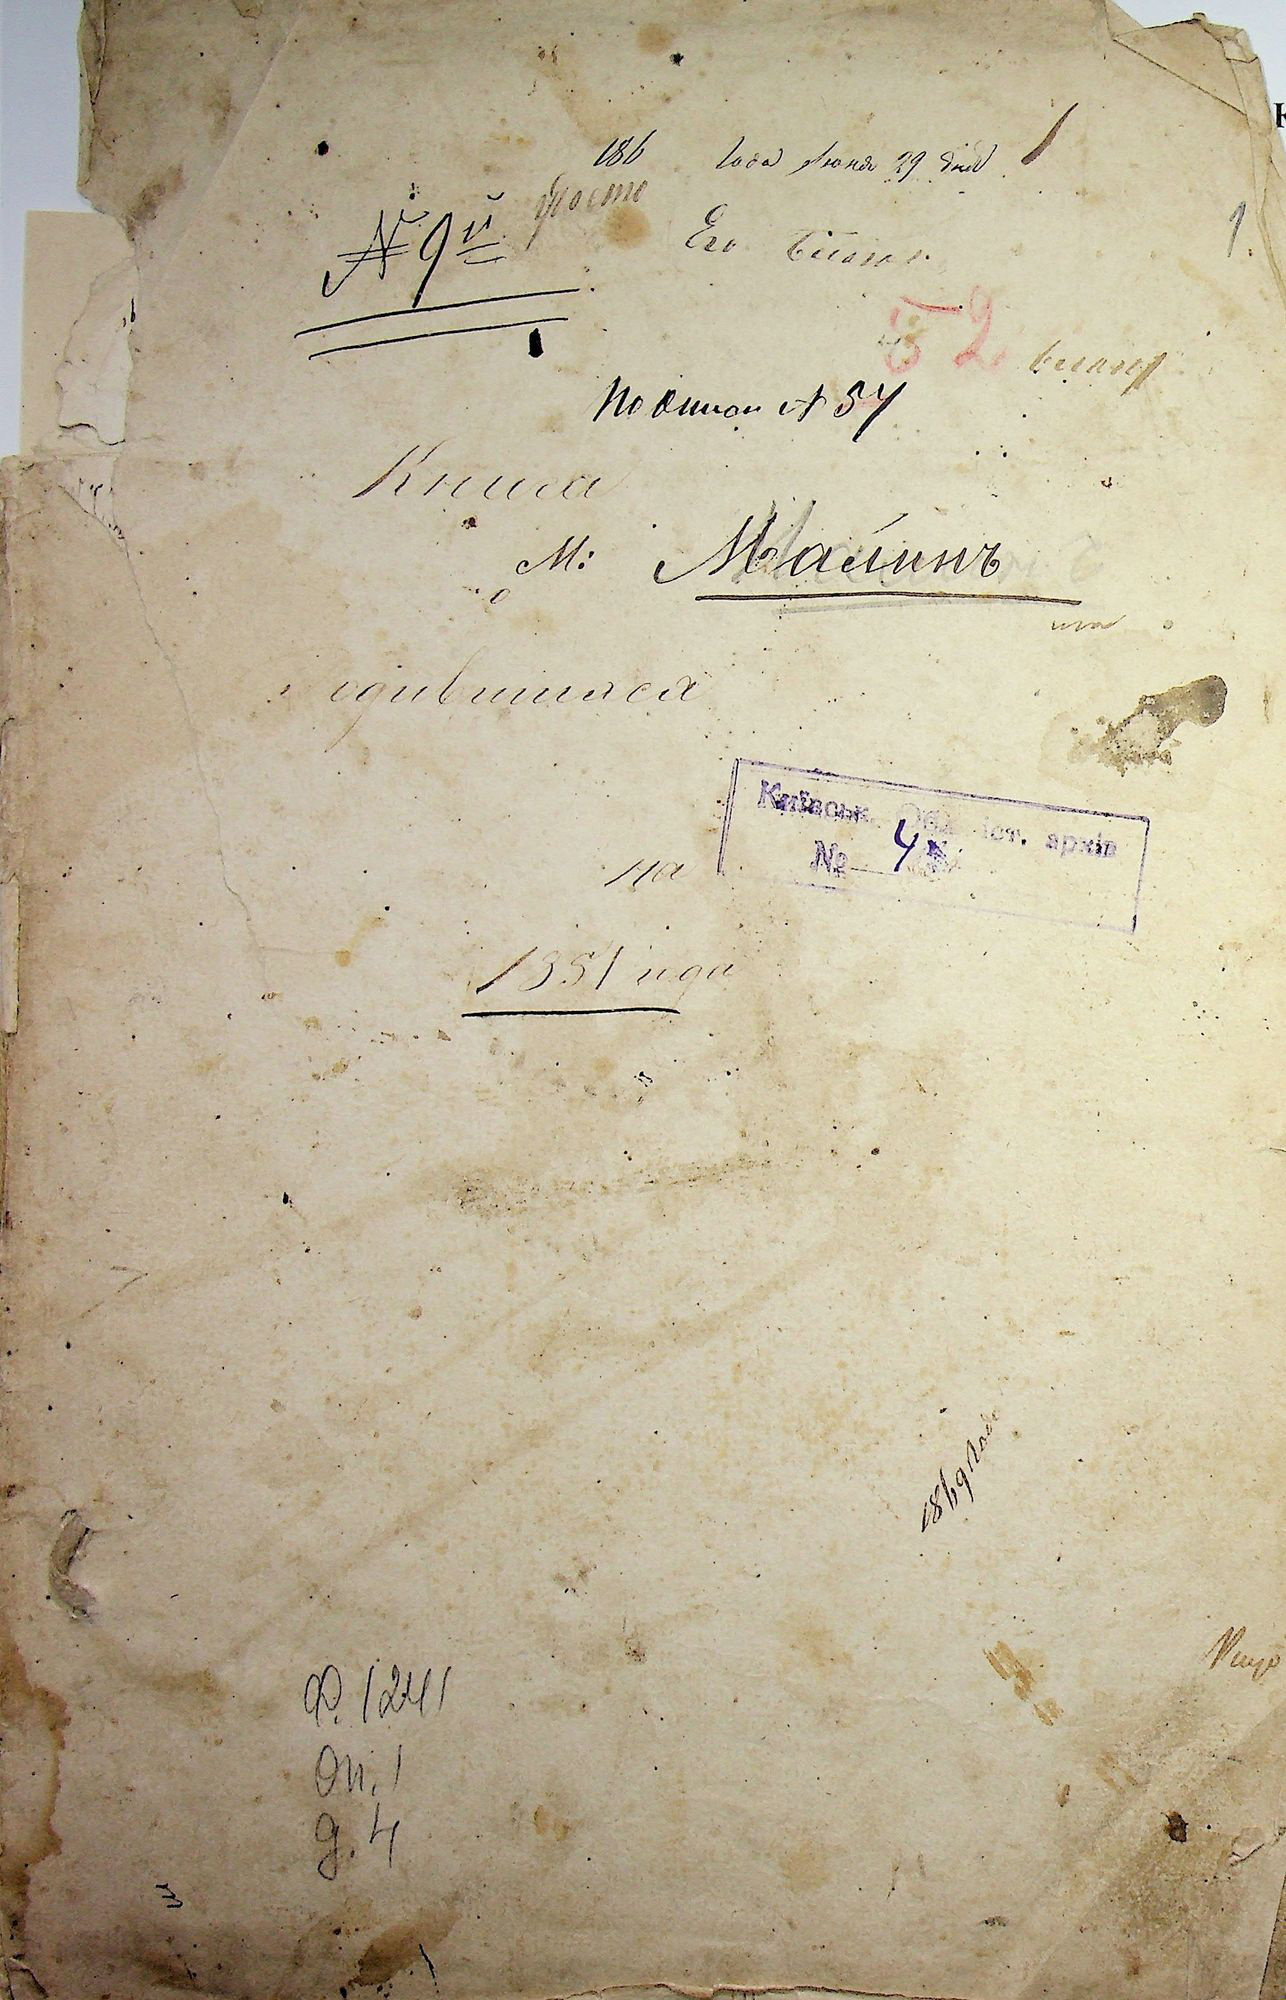 186 года Июня 29 дня
1
№ 9й
Его
52
По описи № 54
Книга
М: Малинъ
одившихся
Київськ. Обл. іст. архів
№ 4
на
1851 года
1869 года
Ф. 1241
Оп. 1
д. 4